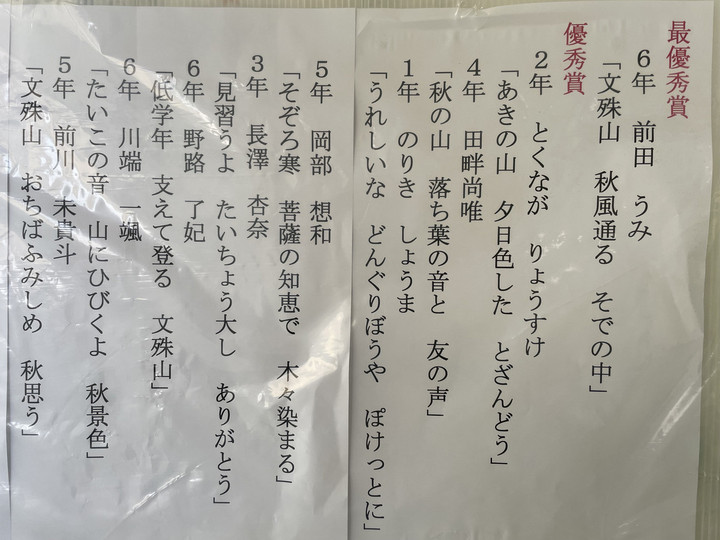 最優秀賞
6年 前田 うみ
「文殊山 秋風通る そでの中」
優秀賞
2年 とくなが りょうすけ
「あきの山 夕日色した とざんどう」
4年 田畔尚唯
「秋の山 落ち葉の音と 友の声」
1年 のりき しょうま
「うれしいな どんぐりぼうや ぽけっとに」
5年 岡部 想和
「そぞろ寒 菩薩の知恵で 木々染まる」
3年 長澤 杏奈
「見習うよ たいちょう大し ありがとう」
6年 野路 了妃
「低学年 支えて登る 文殊山」
6年 川端 一颯
「たいこの音 山にひびくよ 秋景色」
5年 前川 未貴斗
「文殊山 おちばふみしめ 秋思う」